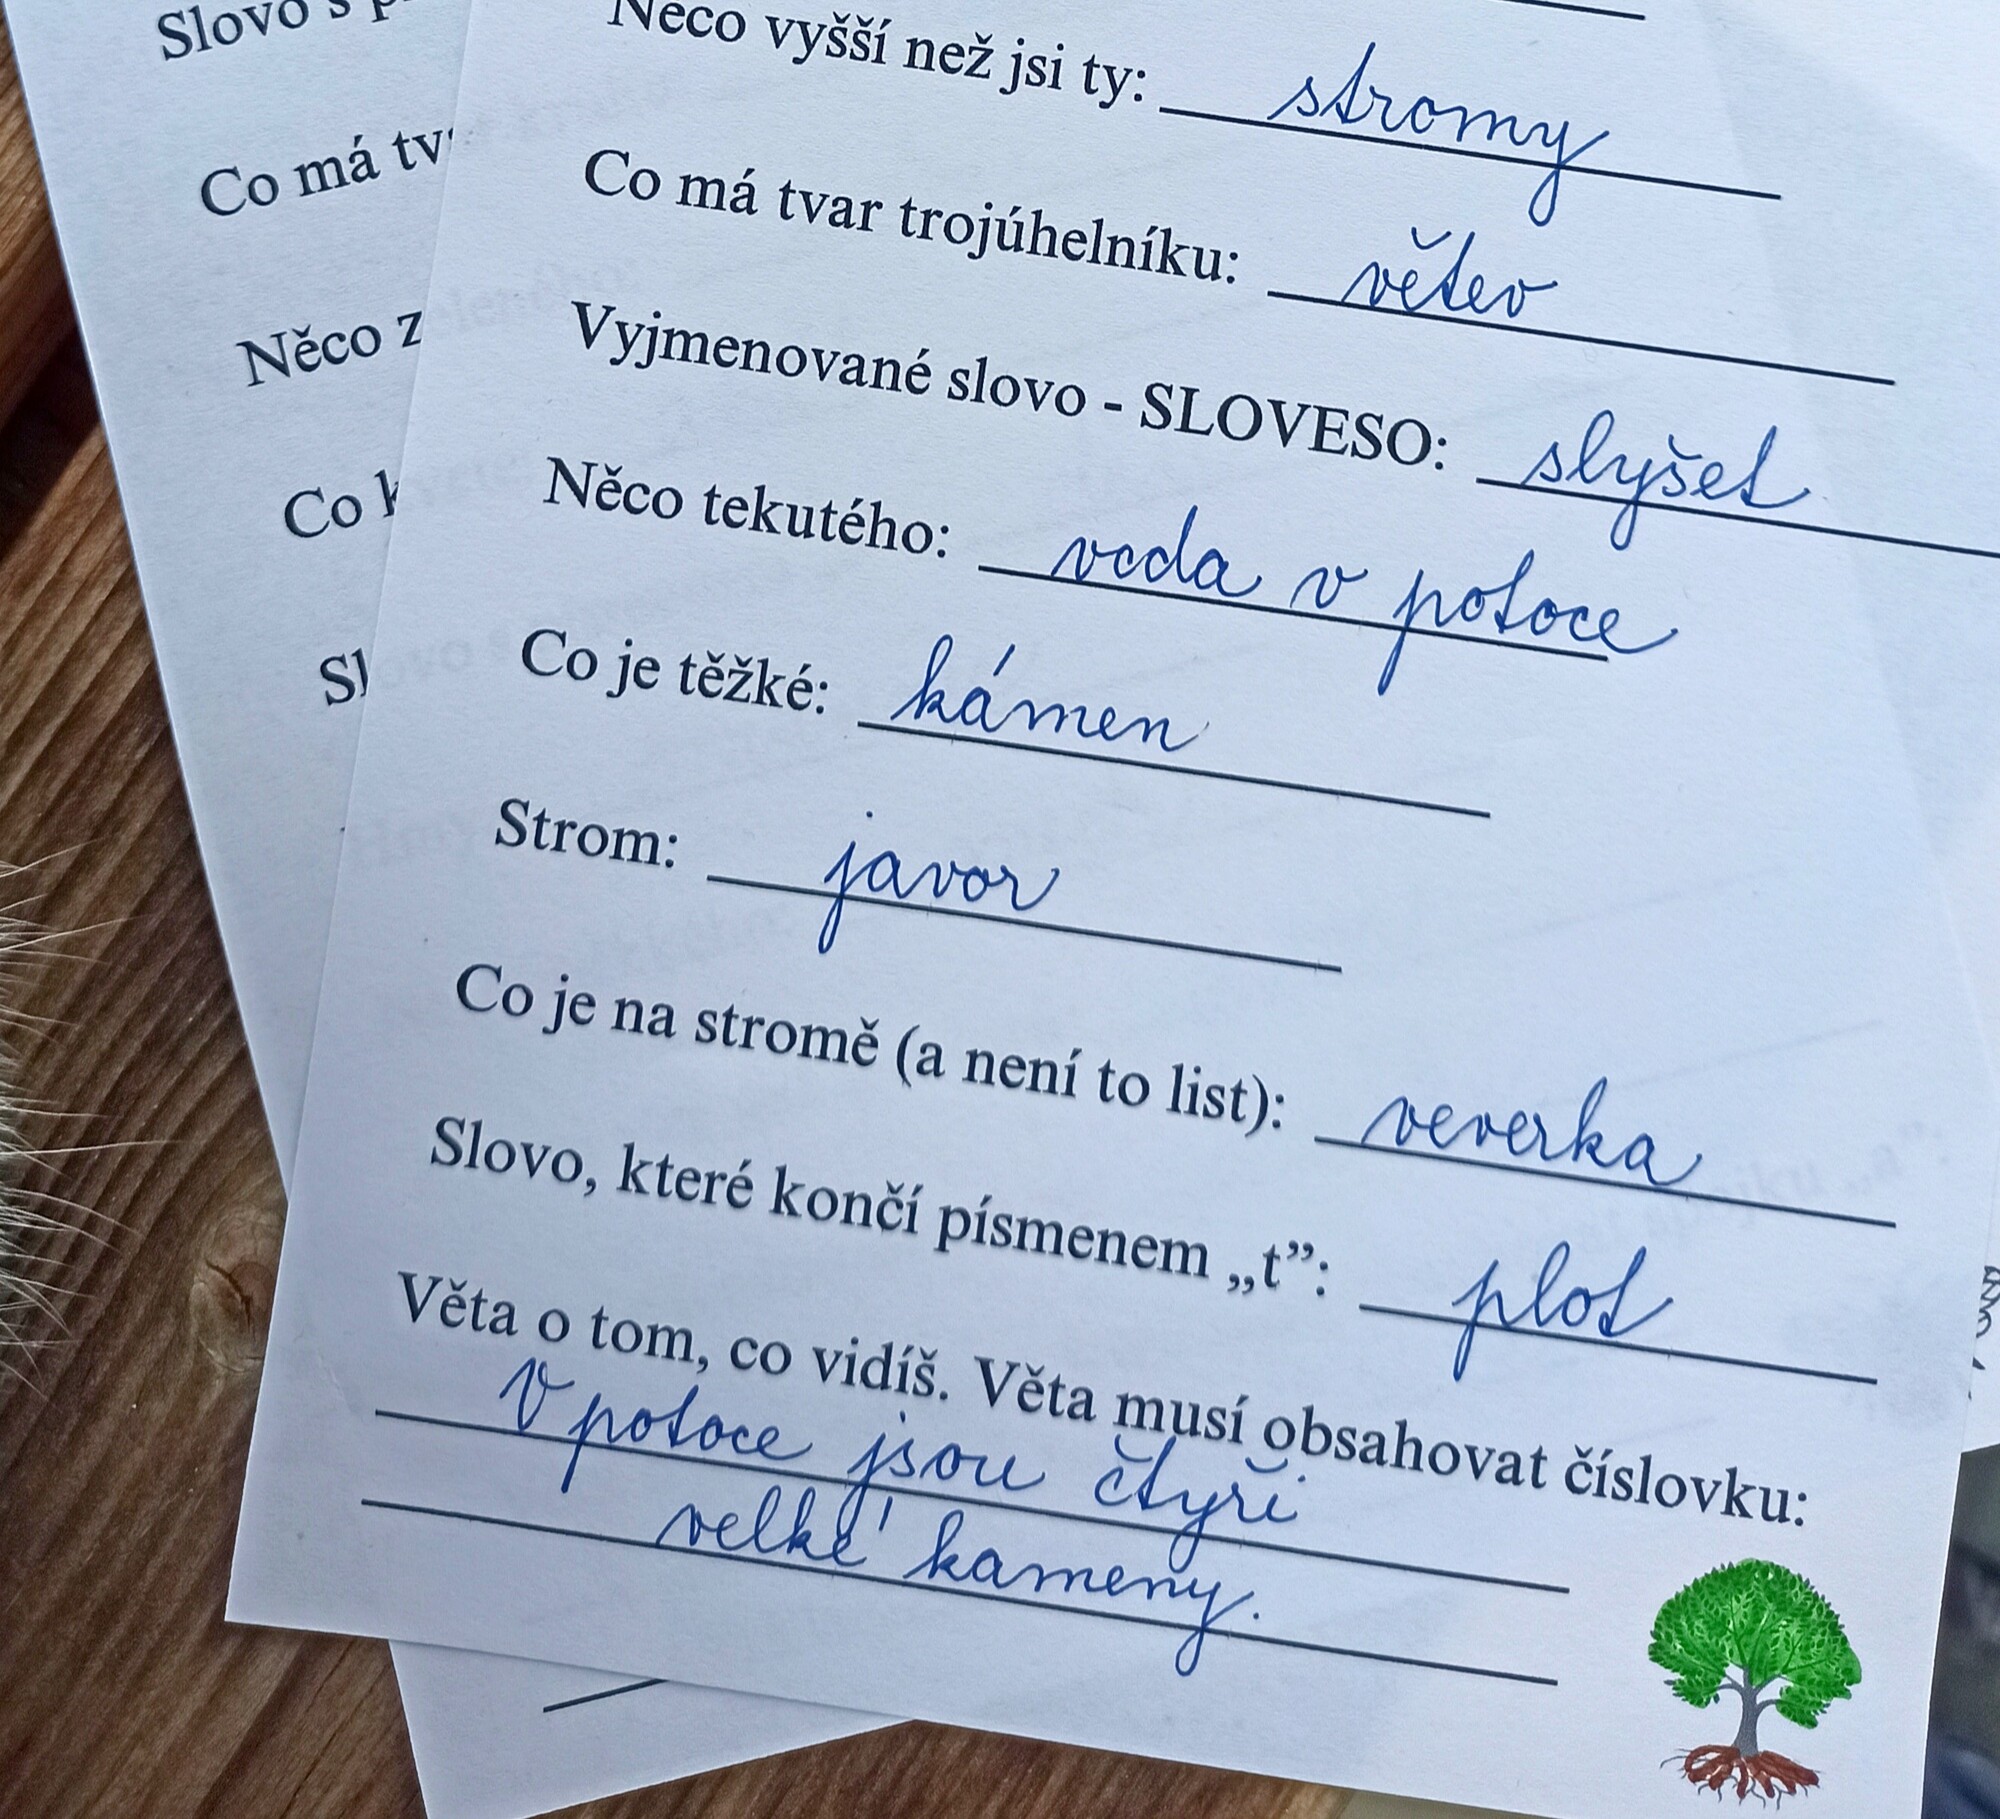 Slovo s p
Co má tv
Něco z
Co k
Sl
Něco vyšší než jsi ty: stromy
Co má tvar trojúhelníku: větev
Vyjmenované slovo - SLOVESO: slyšet
Něco tekutého: voda v potoce
Co je těžké: kámen
Strom: javor
Co je na stromě (a není to list): veverka
Slovo, které končí písmenem „t”: plot
Věta o tom, co vidíš. Věta musí obsahovat číslovku:
V potoce jsou čtyři
velké kameny.